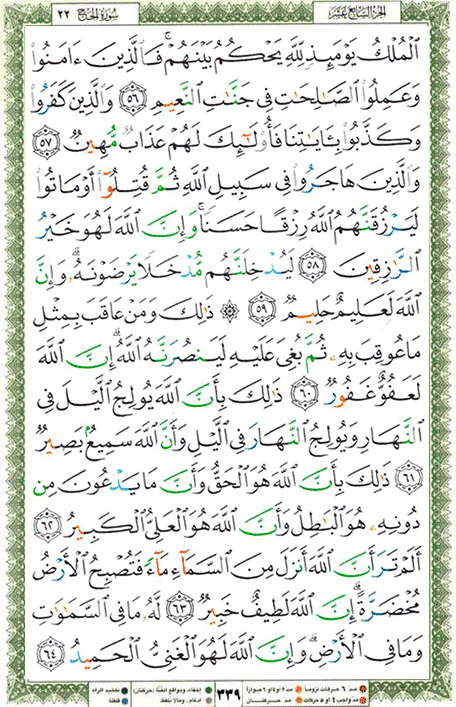 الجزء السابع عشر ٢٢ سورة الحج
ٱلْمُلْكُ يَوْمَئِذٍ لِّلَّهِ يَحْكُمُ بَيْنَهُمْ ۚ فَٱلَّذِينَ ءَامَنُوا۟
وَعَمِلُوا۟ ٱلصَّـٰلِحَـٰتِ فِى جَنَّـٰتِ ٱلنَّعِيمِ ٥٦ وَٱلَّذِينَ كَفَرُوا۟
وَكَذَّبُوا۟ بِـَٔايَـٰتِنَا فَأُو۟لَـٰٓئِكَ لَهُمْ عَذَابٌ مُّهِينٌ ٥٧
وَٱلَّذِينَ هَاجَرُوا۟ فِى سَبِيلِ ٱللَّهِ ثُمَّ قُتِلُوٓا۟ أَوْ مَاتُوا۟
لَيَرْزُقَنَّهُمُ ٱللَّهُ رِزْقًا حَسَنًا ۚ وَإِنَّ ٱللَّهَ لَهُوَ خَيْرُ
ٱلرَّٰزِقِينَ ٥٨ لَيُدْخِلَنَّهُم مُّدْخَلًا يَرْضَوْنَهُۥ ۗ وَإِنَّ
ٱللَّهَ لَعَلِيمٌ حَلِيمٌ ٥٩ ۞ ذَٰلِكَ وَمَنْ عَاقَبَ بِمِثْلِ
مَا عُوقِبَ بِهِۦ ثُمَّ بُغِىَ عَلَيْهِ لَيَنصُرَنَّهُ ٱللَّهُ ۗ إِنَّ ٱللَّهَ
لَعَفُوٌّ غَفُورٌ ٦٠ ذَٰلِكَ بِأَنَّ ٱللَّهَ يُولِجُ ٱلَّيْلَ فِى
ٱلنَّهَارِ وَيُولِجُ ٱلنَّهَارَ فِى ٱلَّيْلِ وَأَنَّ ٱللَّهَ سَمِيعٌۢ بَصِيرٌ
٦١ ذَٰلِكَ بِأَنَّ ٱللَّهَ هُوَ ٱلْحَقُّ وَأَنَّ مَا يَدْعُونَ مِن
دُونِهِۦ هُوَ ٱلْبَـٰطِلُ وَأَنَّ ٱللَّهَ هُوَ ٱلْعَلِىُّ ٱلْكَبِيرُ ٦٢
أَلَمْ تَرَ أَنَّ ٱللَّهَ أَنزَلَ مِنَ ٱلسَّمَآءِ مَآءً فَتُصْبِحُ ٱلْأَرْضُ
مُخْضَرَّةً ۗ إِنَّ ٱللَّهَ لَطِيفٌ خَبِيرٌ ٦٣ لَّهُۥ مَا فِى ٱلسَّمَـٰوَٰتِ
وَمَا فِى ٱلْأَرْضِ ۗ وَإِنَّ ٱللَّهَ لَهُوَ ٱلْغَنِىُّ ٱلْحَمِيدُ ٦٤
مد ٦ حركات لزوماً مد ٢ او ٤ او ٦ جوازاً ٣٣٩ إخفاء، ومواقع الغنة (حركتان) تفخيم الراء
مد واجب ٤ او ٥ حركات مد حركتان إدغام، وما لا يلفظ قلقلة